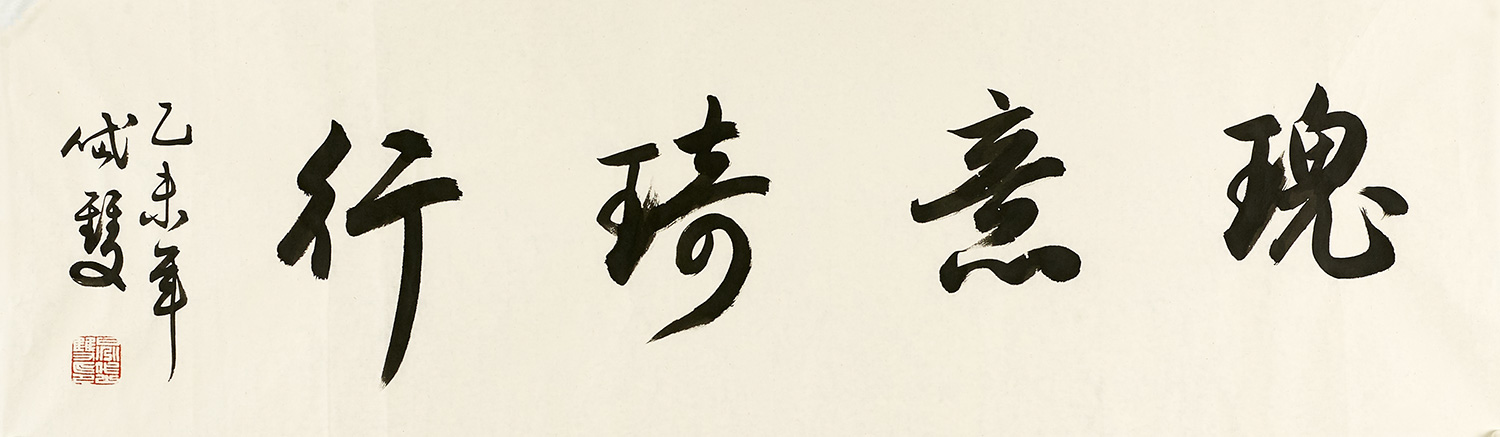 瑰意琦行
乙未年
雙